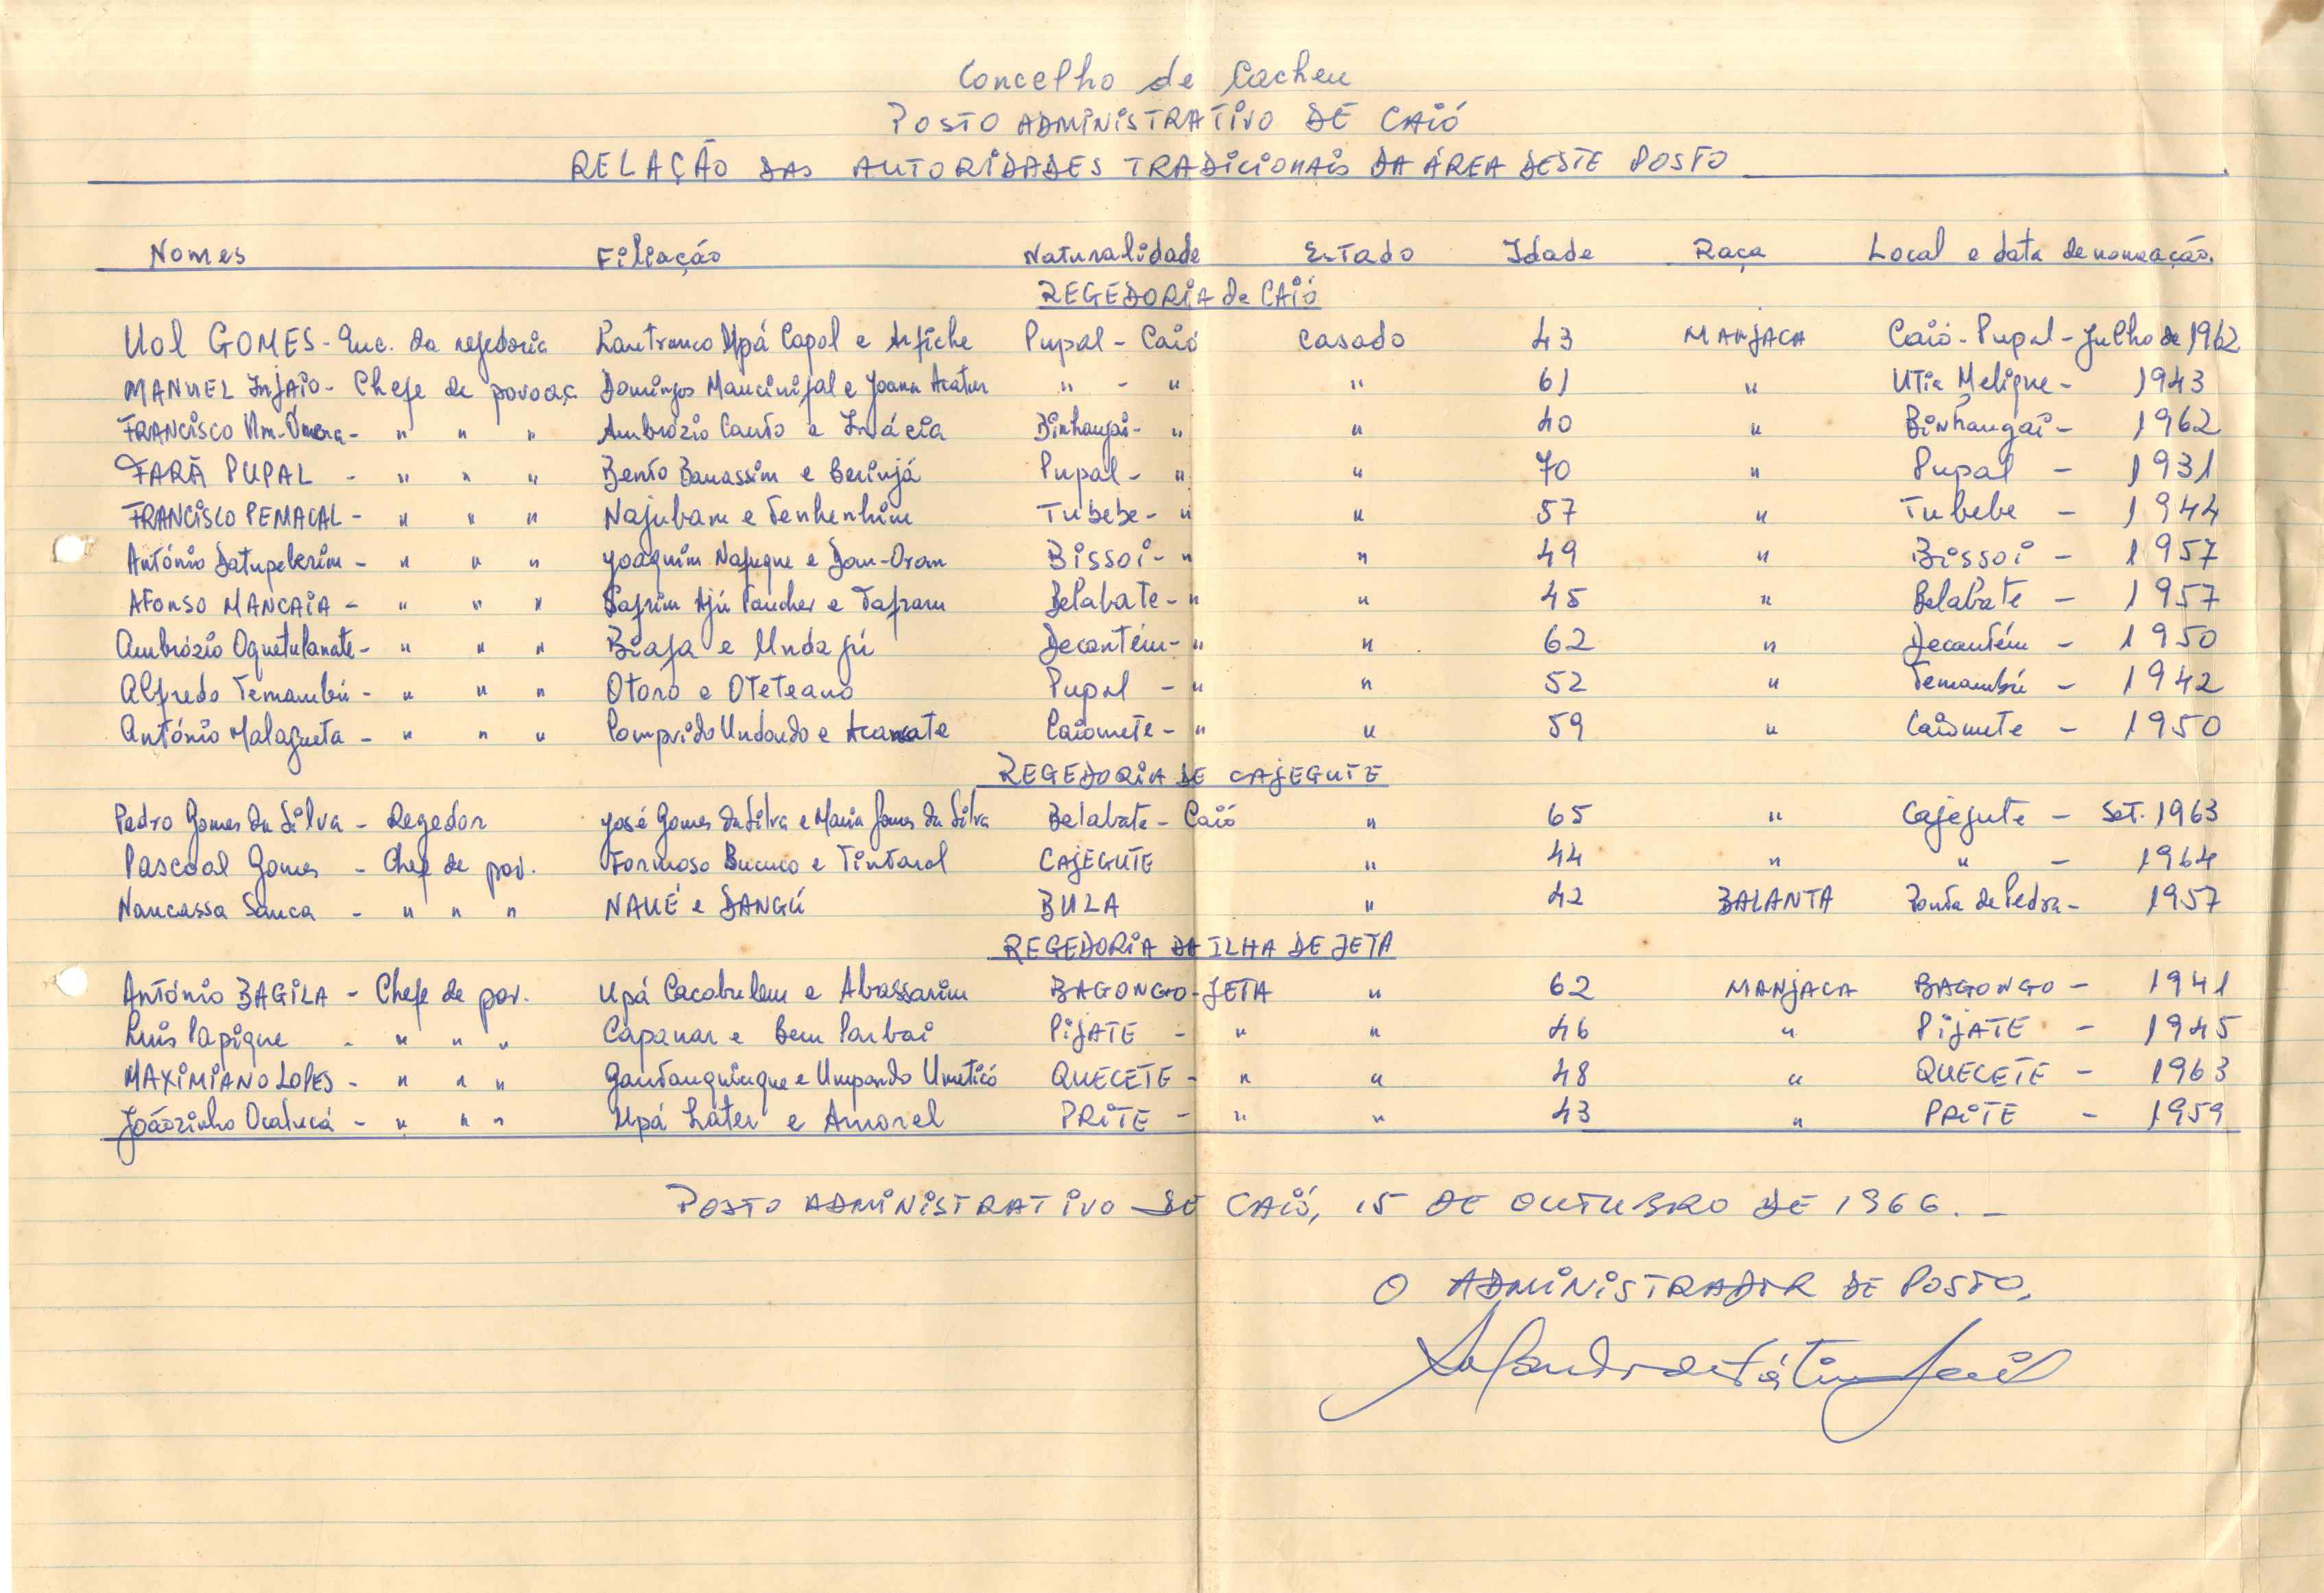 Concelho de Cacheu
POSTO ADMINISTRATIVO DE CAIÓ
RELAÇÃO DAS AUTORIDADES TRADICIONAIS DA ÁREA DESTE POSTO
Nomes Filiação Naturalidade Estado Idade Raça Local e data de nomeação.
REGEDORIA de CAIÓ
Uol GOMES - Enc. da regedoria Lantranco Upá Capol e Arfiche Pupal - Caió casado 43 MANJACA Caió - Pupal - Julho de 1962
MANUEL Injaio - Chefe de povoaç Domingos e Joana " - " " 61 " Utia Meligue - 1943
FRANCISCO - " " " Ambrózio Canto e Inácia Binhangai - " " 40 " Binhangai - 1962
FARÃ PUPAL - " " " Bento Banassim e Berinjá Pupal - " " 70 " Pupal - 1931
FRANCISCO PEMACAL - " " " Najubam e Tenhenhim Tubebe - " " 57 " Tubebe - 1944
António Datupekrim - " " " Joaquim Nafuque e Dom-Oram Bissoi - " " 49 " Bissoi - 1957
AFONSO MANCAIA - " " " Safrim Ajú e Tafram Belabate - " " 45 " Belabate - 1957
Ambrózio Oquetulanate - " " " Biafa e Undafú Decantém - " " 62 " Decantém - 1950
Alfredo Temambú - " " " Otoro e Oteteano Pupal - " " 52 " Temambú - 1942
António Malagueta - " " " Comprido Undondo e Acanate Caiomete - " " 59 " Caiomete - 1950
REGEDORIA DE CAJEGUTE
Pedro Gomes da Silva - Regedor José Gomes da Silva e Maria Gomes da Silva Belabate - Caió " 65 " Cajegute - Set. 1963
Pascoal Gomes - Chefe de pov. Formoso Bucuco e Tintarol CAJEGUTE " 44 " " - 1964
Nancassa Sanca - " " " NAUÉ e DANGÚ BULA " 42 BALANTA Ponta de Pedra - 1957
REGEDORIA DA ILHA DE JETA
António BAGILA - Chefe de pov. Upá Cacabulam e Abassarim BAGONGO - JETA " 62 MANJACA BAGONGO - 1941
Luis Papique - " " " Capanar e Bem Parbai PIJATE - " " 46 " PIJATE - 1945
MAXIMIANO LOPES - " " " Gantanguinque e Umpondo Umeticó QUECETE - " " 48 " QUECETE - 1963
Joãozinho Ocalucá - " " " Upá Láter e Amorel PRITE - " " 43 " PRITE - 1959
POSTO ADMINISTRATIVO DE CAIÓ, 15 DE OUTUBRO DE 1966. -
O ADMINISTRADOR DE POSTO,